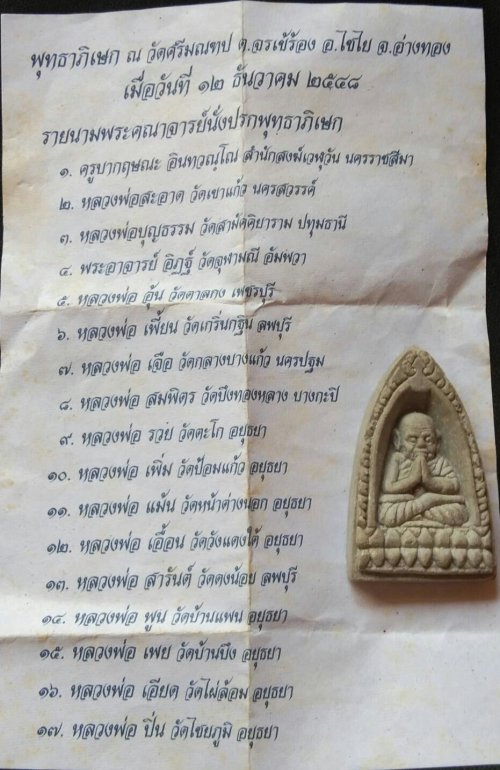 พุทธาภิเษก ณ วัดศรีมณฑป ต.จรเข้ร้อง อ.ไชโย จ.อ่างทอง
เมื่อวันที่ ๑๒ ธันวาคม ๒๕๔๘
รายนามพระคณาจารย์นั่งปรกพุทธาภิเษก
๑. ครูบากฤษณะ อินทวณฺโณ สำนักสงฆ์เวฬุวัน นครราชสีมา
๒. หลวงพ่อสะอาด วัดเขาแก้ว นครสวรรค์
๓. หลวงพ่อบุญธรรม วัดสามัคคิยาราม ปทุมธานี
๔. พระอาจารย์ อิฏฐ์ วัดจุฬามณี อัมพวา
๕. หลวงพ่อ อุ้น วัดตาลกง เพชรบุรี
๖. หลวงพ่อ เพี้ยน วัดเกริ่นกฐิน ลพบุรี
๗. หลวงพ่อ เจือ วัดกลางบางแก้ว นครปฐม
๘. หลวงพ่อ สมพิตร วัดบึงทองหลาง บางกะปิ
๙. หลวงพ่อ รวย วัดตะโก อยุธยา
๑๐. หลวงพ่อ เพิ่ม วัดป้อมแก้ว อยุธยา
๑๑. หลวงพ่อ แม้น วัดหน้าต่างนอก อยุธยา
๑๒. หลวงพ่อ เอื้อน วัดวังแดงใต้ อยุธยา
๑๓. หลวงพ่อ สารันต์ วัดดงน้อย ลพบุรี
๑๔. หลวงพ่อ พูน วัดบ้านแพน อยุธยา
๑๕. หลวงพ่อ เพย วัดบ้านบึง อยุธยา
๑๖. หลวงพ่อ เอียด วัดไผ่ล้อม อยุธยา
๑๗. หลวงพ่อ ปิ่น วัดไชยภูมิ อยุธยา